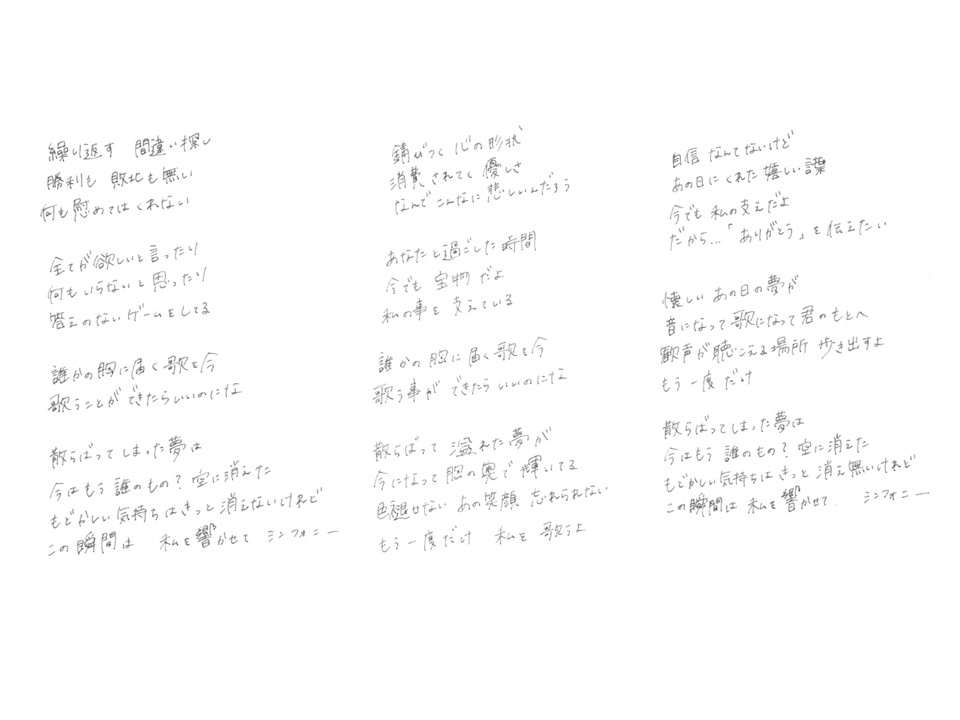 繰り返す 間違い探し
勝利も 敗北も無い
何も慰めてはくれない
全てが欲しいと言ったり
何もいらないと思ったり
答えのないゲームをしてる
誰かの胸に届く歌を今
歌うことができたらいいのにな
散らばってしまった夢は
今はもう 誰のもの? 空に消えた
もどかしい気持ちはきっと消えないけれど
この瞬間は 私を響かせて シンフォニー
錆びつく心の形状
消費されてく優しさ
なんでこんなに悲しいんだろう
あなたと過ごした時間
今でも 宝物だよ
私の事を 支えている
誰かの胸に届く歌を今
歌う事が できたらいいのにな
散らばって 溢れた夢が
今になって胸の奥で 輝いてる
色褪せない あの笑顔 忘れられない
もう一度だけ 私を 歌うよ
自信なんてないけど
あの日にくれた嬉しい言葉
今でも 私の支えだよ
だから...「ありがとう」を伝えたい
懐しい あの日の夢が
音になって歌になって君のもとへ
歓声が聴こえる場所 歩き出すよ
もう一度だけ
散らばってしまった夢は
今はもう 誰のもの? 空に消えた
もどかしい気持ちはきっと 消え無いけれど
この瞬間は 私を響かせて シンフォニー